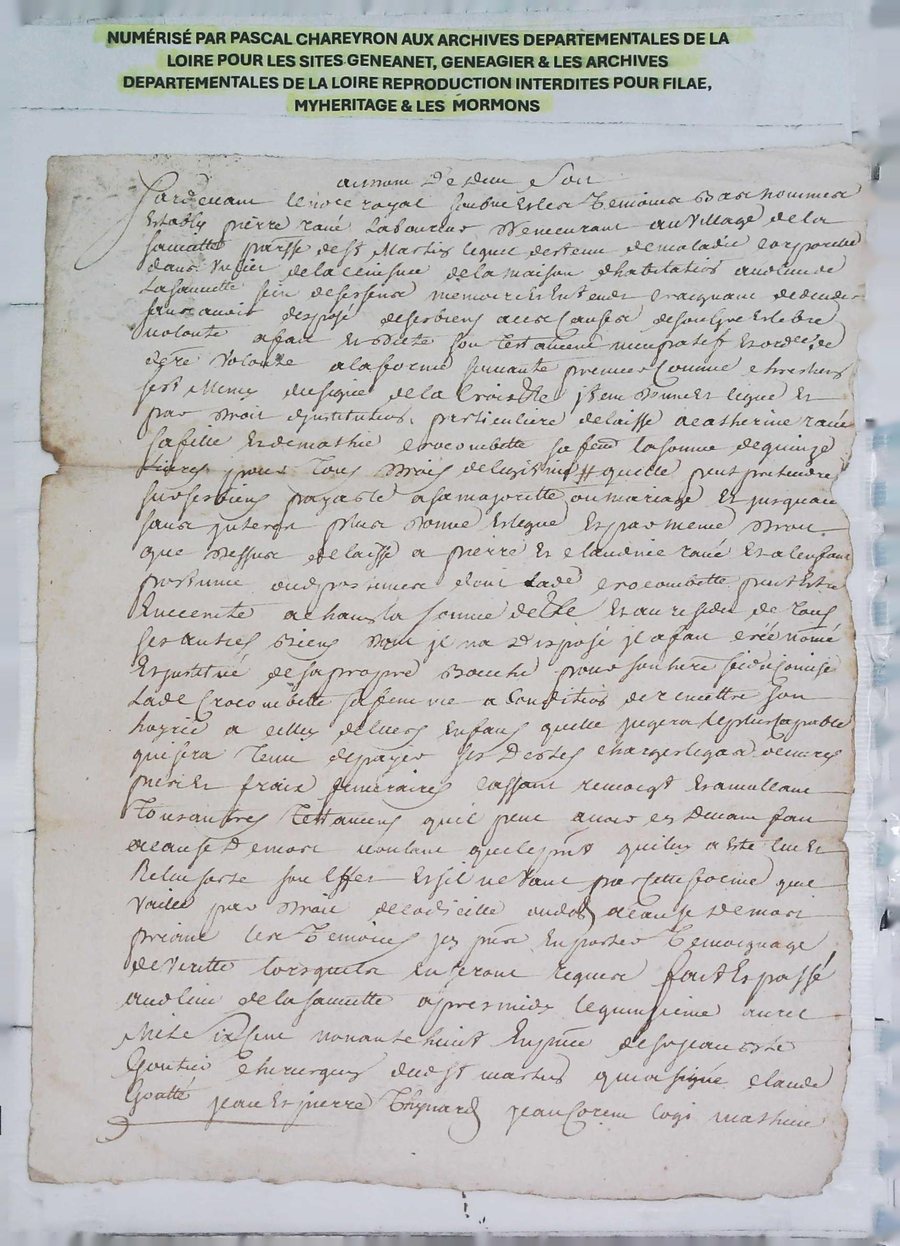 NUMÉRISÉ PAR PASCAL CHAREYRON AUX ARCHIVES DEPARTEMENTALES DE LA
LOIRE POUR LES SITES GENEANET, GENEAGIER & LES ARCHIVES
DEPARTEMENTALES DE LA LOIRE REPRODUCTION INTERDITES POUR FILAE,
MYHERITAGE & LES MORMONS
au nom De Dieu Soit
Pardevant le no.re royal soubne et les Temoings Bas nommes
Estably pierre rané Laboureur Demeurant au Village de la
parsse de St Martin lequel destenu de maladie corporelle
dans de la de la maison d'habitation au lieu de
sein de ses sens memoire et Entend craignant de deceder
sans avoir desposé de ses biens a ces Causes de son gre et libre
volonte a fait Et Dicté son Testament nuncupatif et ordce de
dere Volonte a la forme suivante premier Comme chrestien
sest Muny du signe de la Croix Donne Et legue Et
par Droit d'justitution particuliere delaisse a catherine rané
sa fille Et de mathie crocombette sa fem la somme de quinze
Livres pour Tous Droits de legitime quelle peut pretendre
sur ses biens payable a sa majoritte ou mariage Et jusques
sans jnterets plus Donne Et legue Et par meme Droit
que Dessus delaisse a pierre Et claudine rané Et a lenfant
postume ou postumes dont Lade crocombette peut Estre
Enceinte a chascun la somme de Et au residu de Tous
ses autres Biens Dont jl na Disposé jl a fait créé nomé
Et justitué de sa propre Bouche pour son here
Lade Crocombette sa femme a Condition de remettre son
hoyrie a celluy de leurs Enfans quelle jugera le plus capable
qui sera Tenu de payer ses Debtes charges legats œuvres
pies Et fraix funeraires cassant revocqt Et annullant
Tous autres Testaments quil peut avoir cy Devant fait
a cause De mort voulant que le pnt quil luy a Esté lu Et
Relu sorte son Effet Et sil ne Vaut par cette forme que
Vaille par Droit de codicille ou dons a cause De mort
priant les Temoins jcy pns En porter Temoignage
de Veritte lorsquils En seront requis fait Et passé
au lieu de la apres midy le quinsieme avril
Mil Six Cent nonante huit En pnce de sr jean
chirurgien dud St martin qui a signé claude
Goutté jean Et pierre Thynard jean mathieu